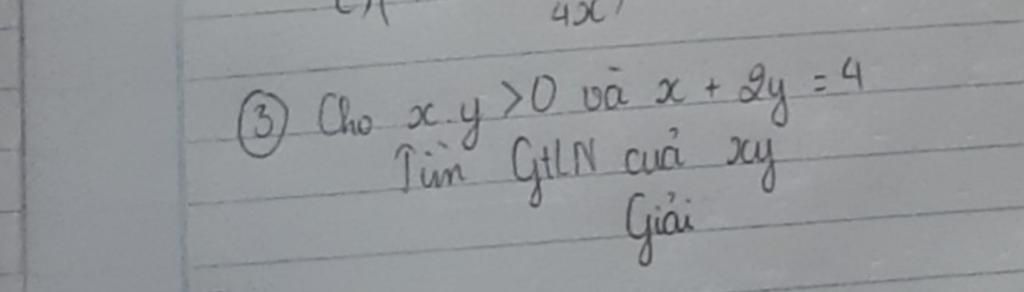 4x
③ Cho x.y > 0 và x + 2y = 4
Tìm GtLN cuả xy
Giải